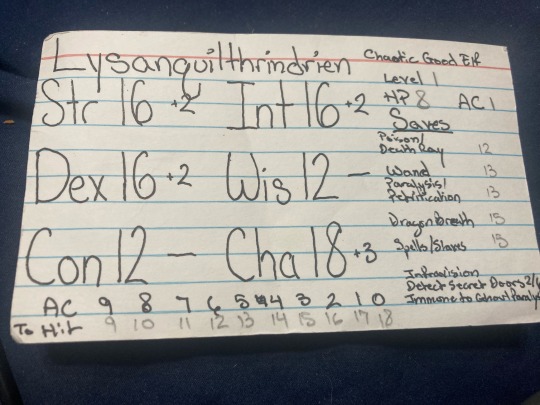 Lysanquilthrindrien
Chaotic Good Elf
Level 1
HP 8 AC 1
Str 16 +2 Int 16 +2
Saves
Poison/
Death Ray 12
Dex 16 +2 Wis 12 —
Wand 13
Paralysis/
Petrification 13
Dragon Breath 15
Con 12 — Cha 18 +3
Spells/Staves 15
Infravision
Detect Secret Doors 2/6
Immune to Ghoul Paralys
AC 9 8 7 6 5 4 3 2 1 0
To Hit 9 10 11 12 13 14 15 16 17 18